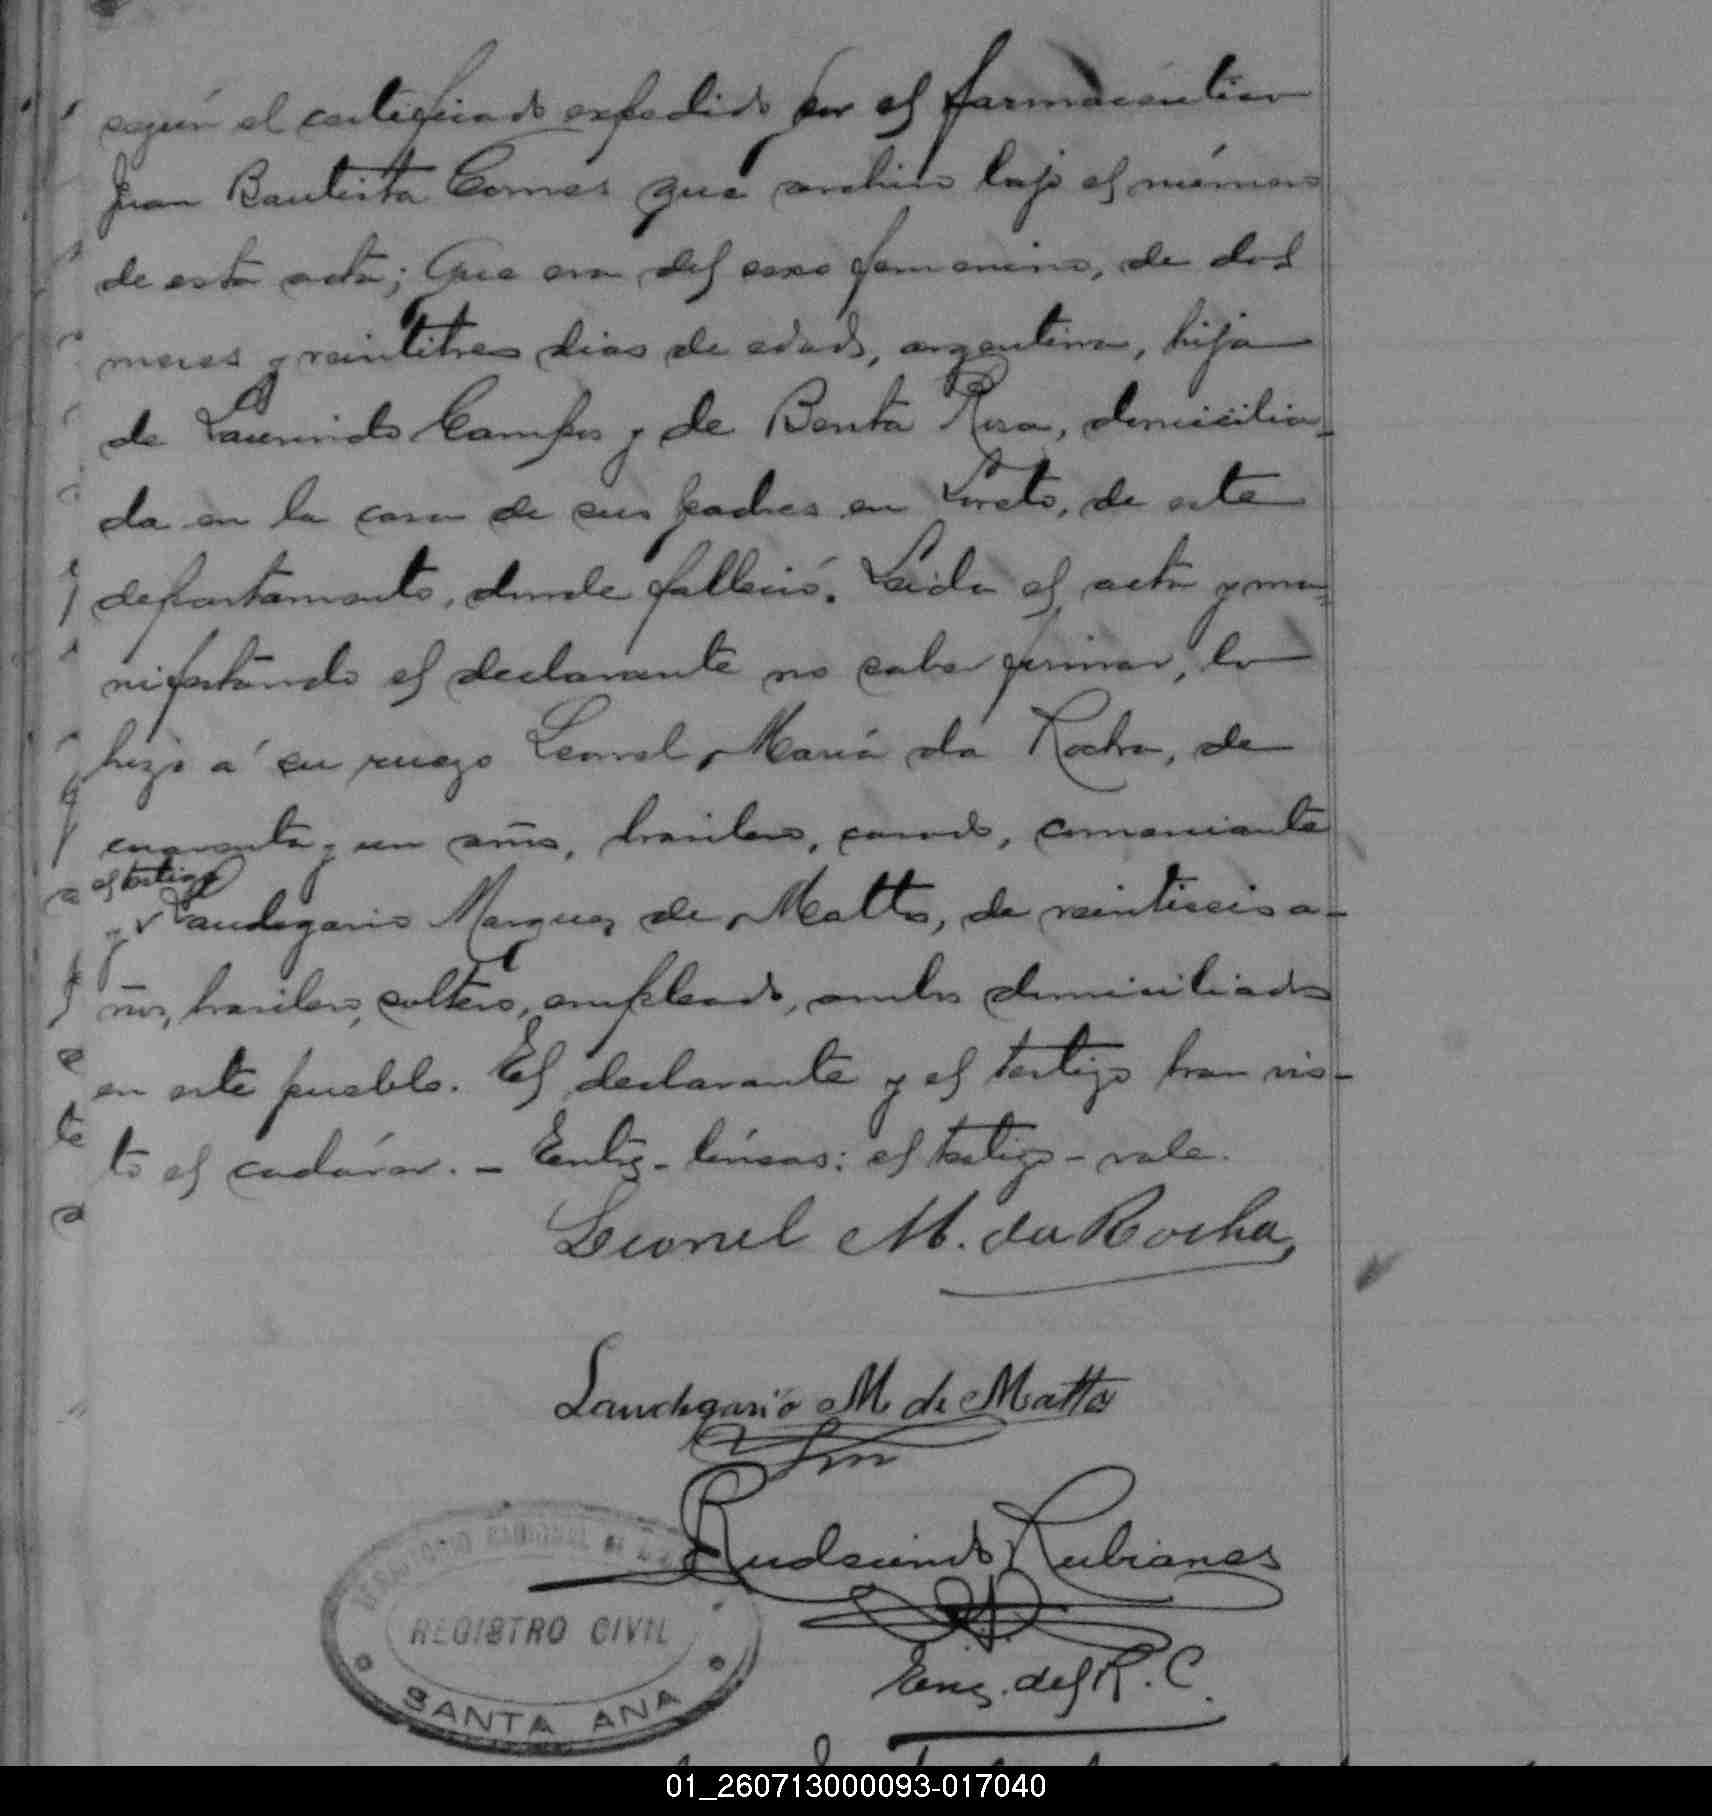 según el certificado expedido por el farmacéutico
Juan Bautista Comes que archivo bajo el número
de esta acta; Que era del sexo femenino, de dos
meses y veintitres dias de edad, argentina, hija
de Laurindo Campos y de Benta Rosa, domicilia-
da en la casa de sus padres en Loreto, de este
departamento, donde falleció. Leida el acta y ma-
nifestando el declarante no saber firmar, lo
hizo á su ruego Leonel María da Rocha, de
cuarenta y un años, brasilero, casado, comerciante
el testigo
y Laudegario Marques de Matto, de veintiseis a-
ños, brasilero, soltero, empleado, ambos domiciliados
en este pueblo. El declarante y el testigo han vis-
to el cadáver. - Entre-líneas: el testigo - vale.
Leonel M. da Rocha,
Laudegario M. de Matto
Rudecindo Rubianes
Enc. del R. C.
REGISTRO CIVIL
SANTA ANA
01_260713000093-017040